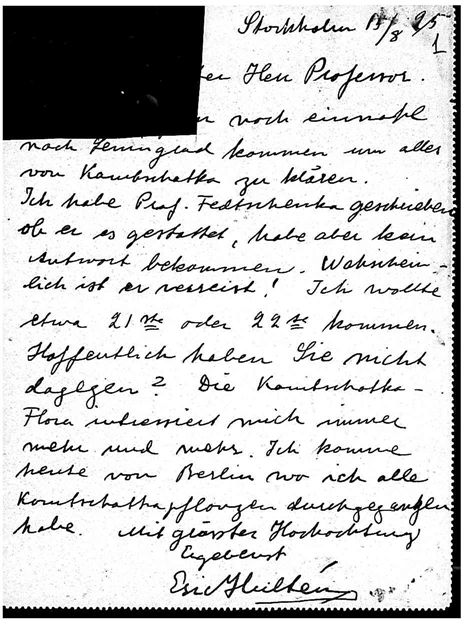 Stockholm 15/8 25
1
Herr Professor.
noch einmahl
nach Leningrad kommen um alles
von Kamtschatka zu klären.
Ich habe Prof. Fedtschenka geschrieben
ob er es gestattet, habe aber kein
Antwort bekommen. Wahschein-
lich ist er verreist! Ich wollte
etwa 21ste oder 22te kommen.
Hoffentlich haben Sie nicht
dagegen? Die Kamtschatka-
Flora intressiert mich immer
mehr und mehr. Ich komme
heute von Berlin wo ich alle
Kamtschatkapflanzen durchgegangen
habe. Mit grösster Hochachtung
Ergebenst
Eric Hultén